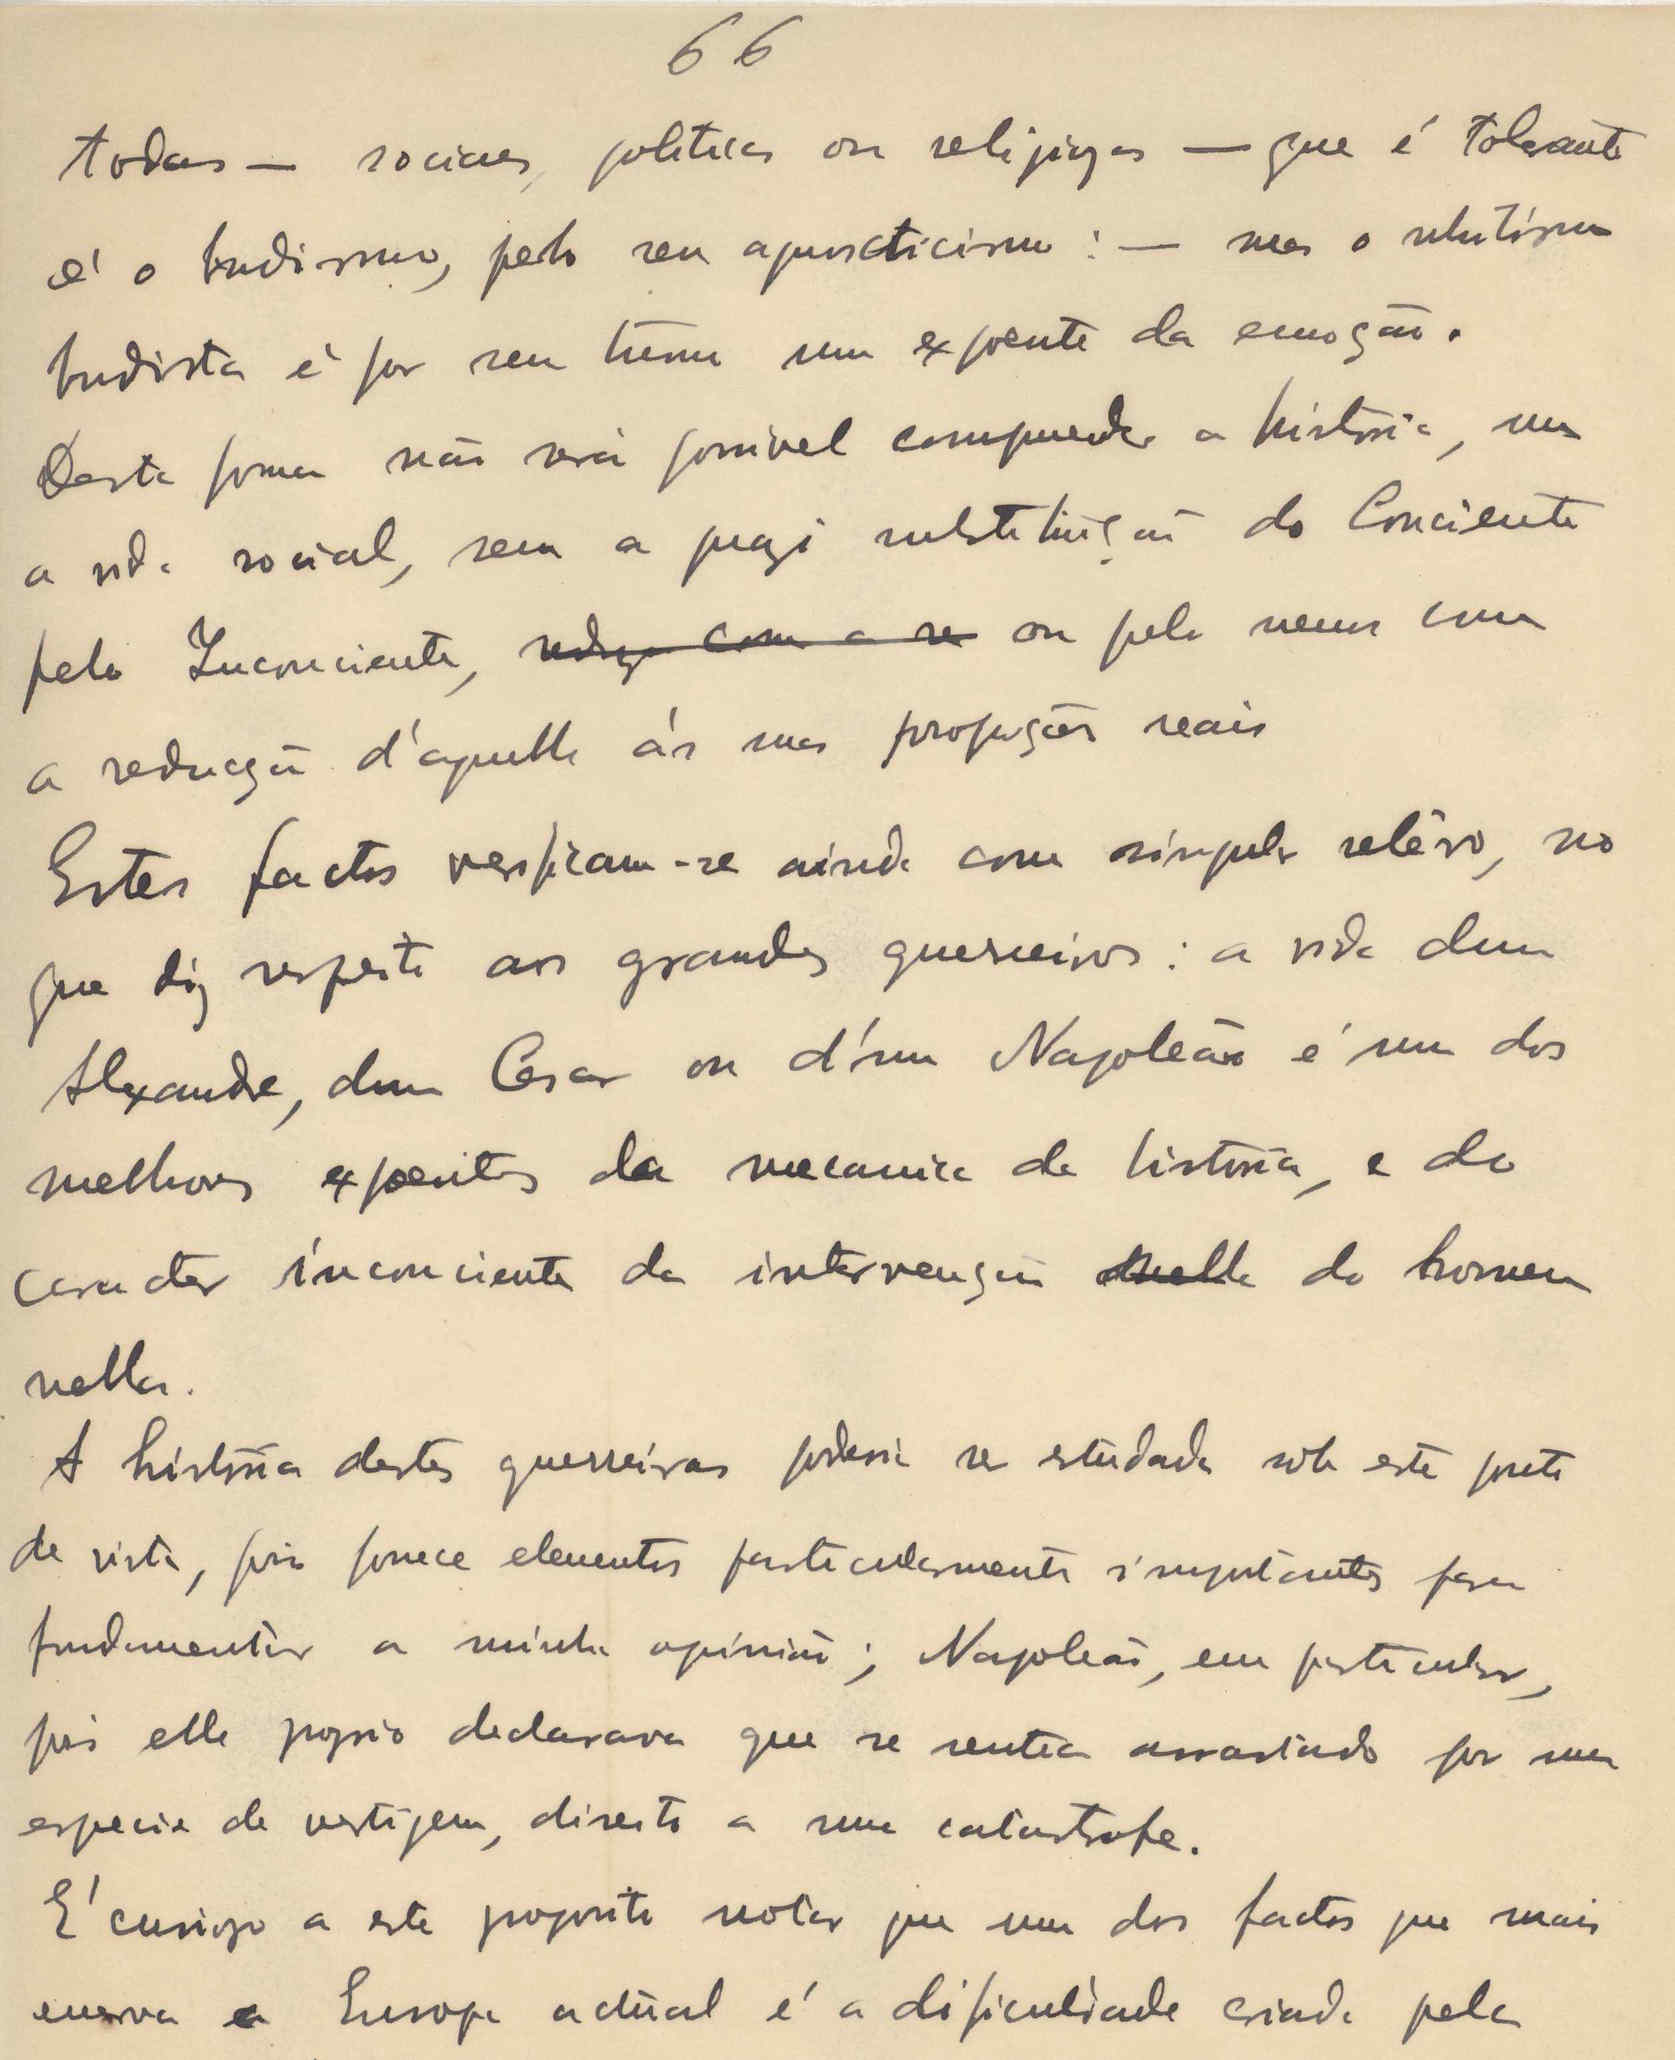 66
todas — sociaes, politicas ou religiosas — que é tolerante
é o budismo, pelo seu agnosticismo : — mas o
budista é por seu turno um expoente da emoção.
Desta forma não será possivel compreender a história, nem
a vida social, sem a quasi substituição do Conciente
pelo Inconciente, reduza com a re ou pelo menos com
a reducção d'aquelle ás suas proporções reais
Estes factos verificam-se ainda com singular relêvo, no
que diz respeito aos grandes guerreiros : a vida dum
Alexandre, dum Cesar ou d'um Napoleão é um dos
melhores expoentes da mecanica da história, e do
caracter inconciente da intervenção do homem
nella.
A história destes guerreiros poderia ser estudada sob este ponto
de vista, pois fornece elementos particularmente importantes para
fundamentar a minha opinião ; Napoleão, em particular,
pois elle proprio declarava que se sentia arrastado por uma
especie de vertigem, direito a uma catastrofe.
E' curioso a este proposito notar que um dos factos que mais
enerva a Europa actual é a dificuldade criada pela